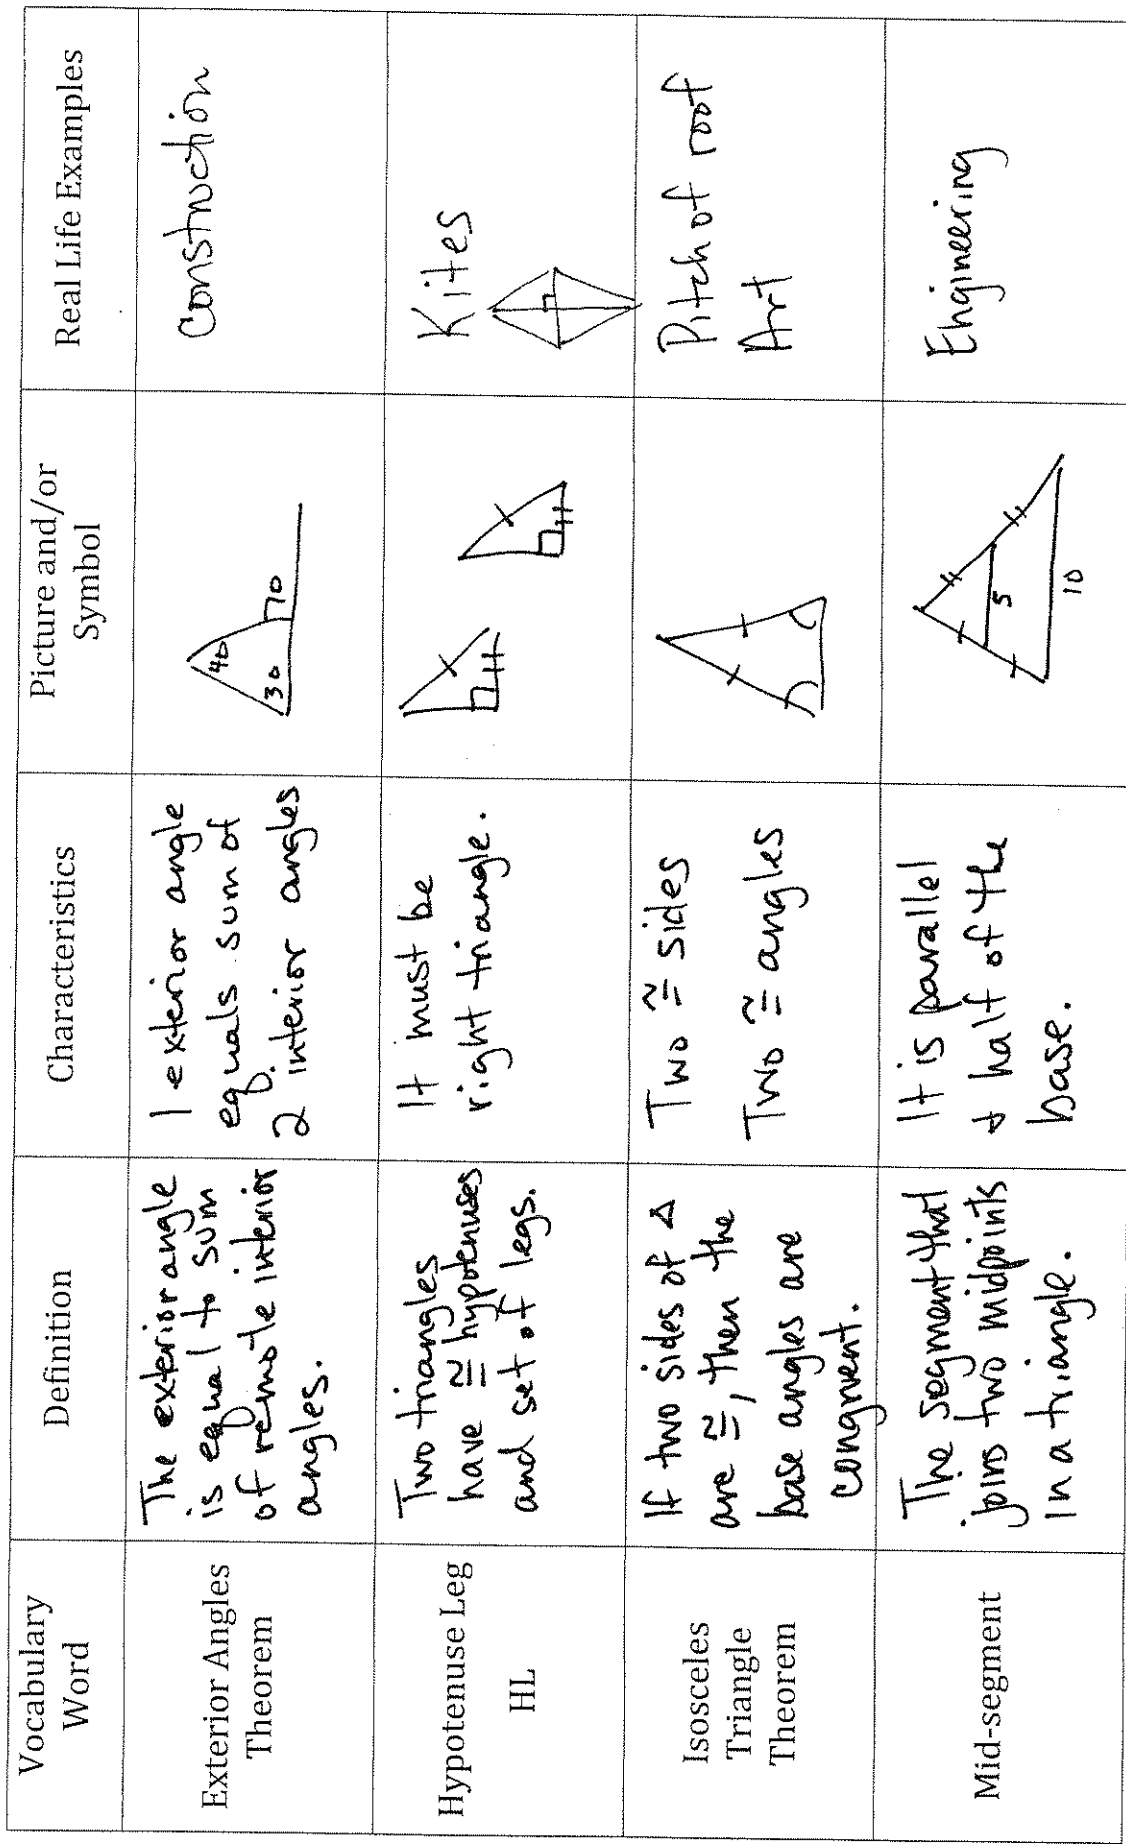 Vocabulary
Word
Definition
Characteristics
Picture and/or
Symbol
Real Life Examples
Exterior Angles
Theorem
The exterior angle
is equal to sum
of remote interior
angles.
1 exterior angle
equals sum of
2 interior angles
40
30
70
Construction
Hypotenuse Leg
HL
Two triangles
have ≅ hypotenuses
and set of legs.
It must be
right triangle.
Kites
Isosceles
Triangle
Theorem
If two sides of △
are ≅, then the
base angles are
congruent.
Two ≅ sides
Two ≅ angles
Pitch of roof
Art
Mid-segment
The segment that
joins two midpoints
in a triangle.
It is parallel
& half of the
base.
5
10
Engineering